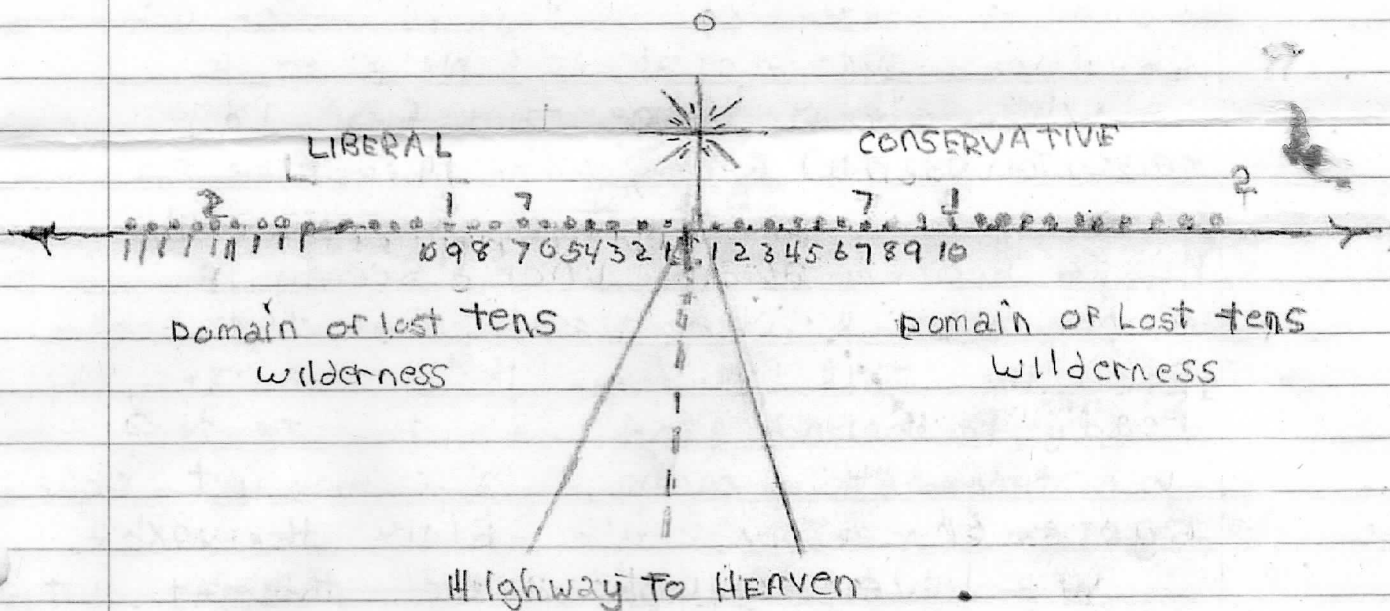 0
LIBERAL CONSERVATIVE
2 1 7 7 1 2
10 9 8 7 6 5 4 3 2 1 1 2 3 4 5 6 7 8 9 10
Domain of lost tens Domain OF Lost tens
wilderness Wilderness
Highway To HEAVEN